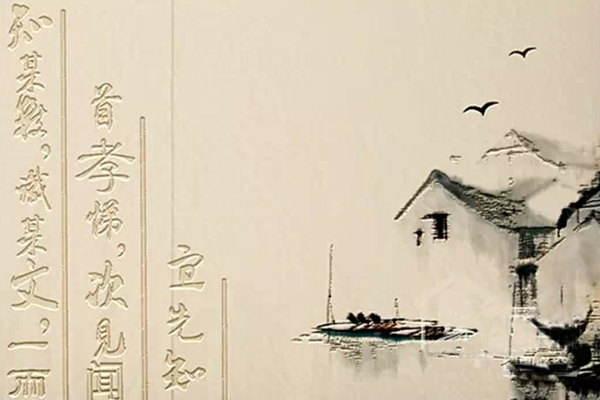 宜先知
首孝悌，次見聞
知某數，識某文，一而